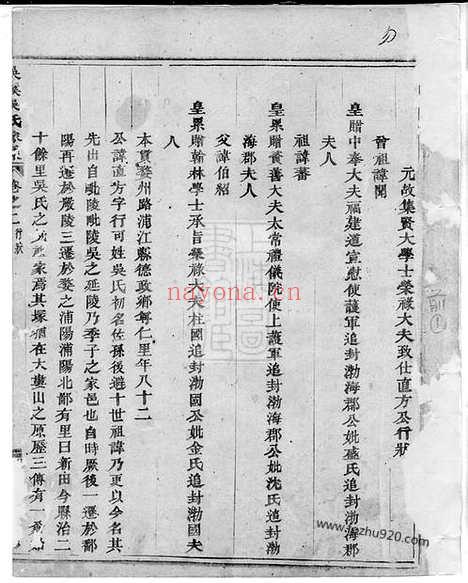 元故集賢大學士榮祿大夫致仕直方公行狀
曾祖諱聞
皇贈中奉大夫福建道宣慰使護軍追封渤海郡公妣盛氏追封渤海郡
夫人
祖諱蕃
皇累贈資善大夫太常禮儀院使上護軍追封渤海郡公妣沈氏追封渤
海郡夫人
父諱伯紹
皇累贈翰林學士承旨榮祿大夫柱國追封渤國公妣金氏追封渤國夫
人
本貫婺州路浦江縣德政鄉尊仁里年八十二
公諱直方字行可姓吳氏初名佐孫後避十世祖諱乃更以今名其
先出自毗陵毗陵吳之延陵乃季子之家邑也自時厥後一遷於鄱
陽再遷於嚴陵三遷於婺之浦陽浦陽北鄙有里曰新田今縣治二
十餘里吳氏之家焉其塚猶在大婁山之原歷三傳有一
吳氏
行狀
nayona.cn